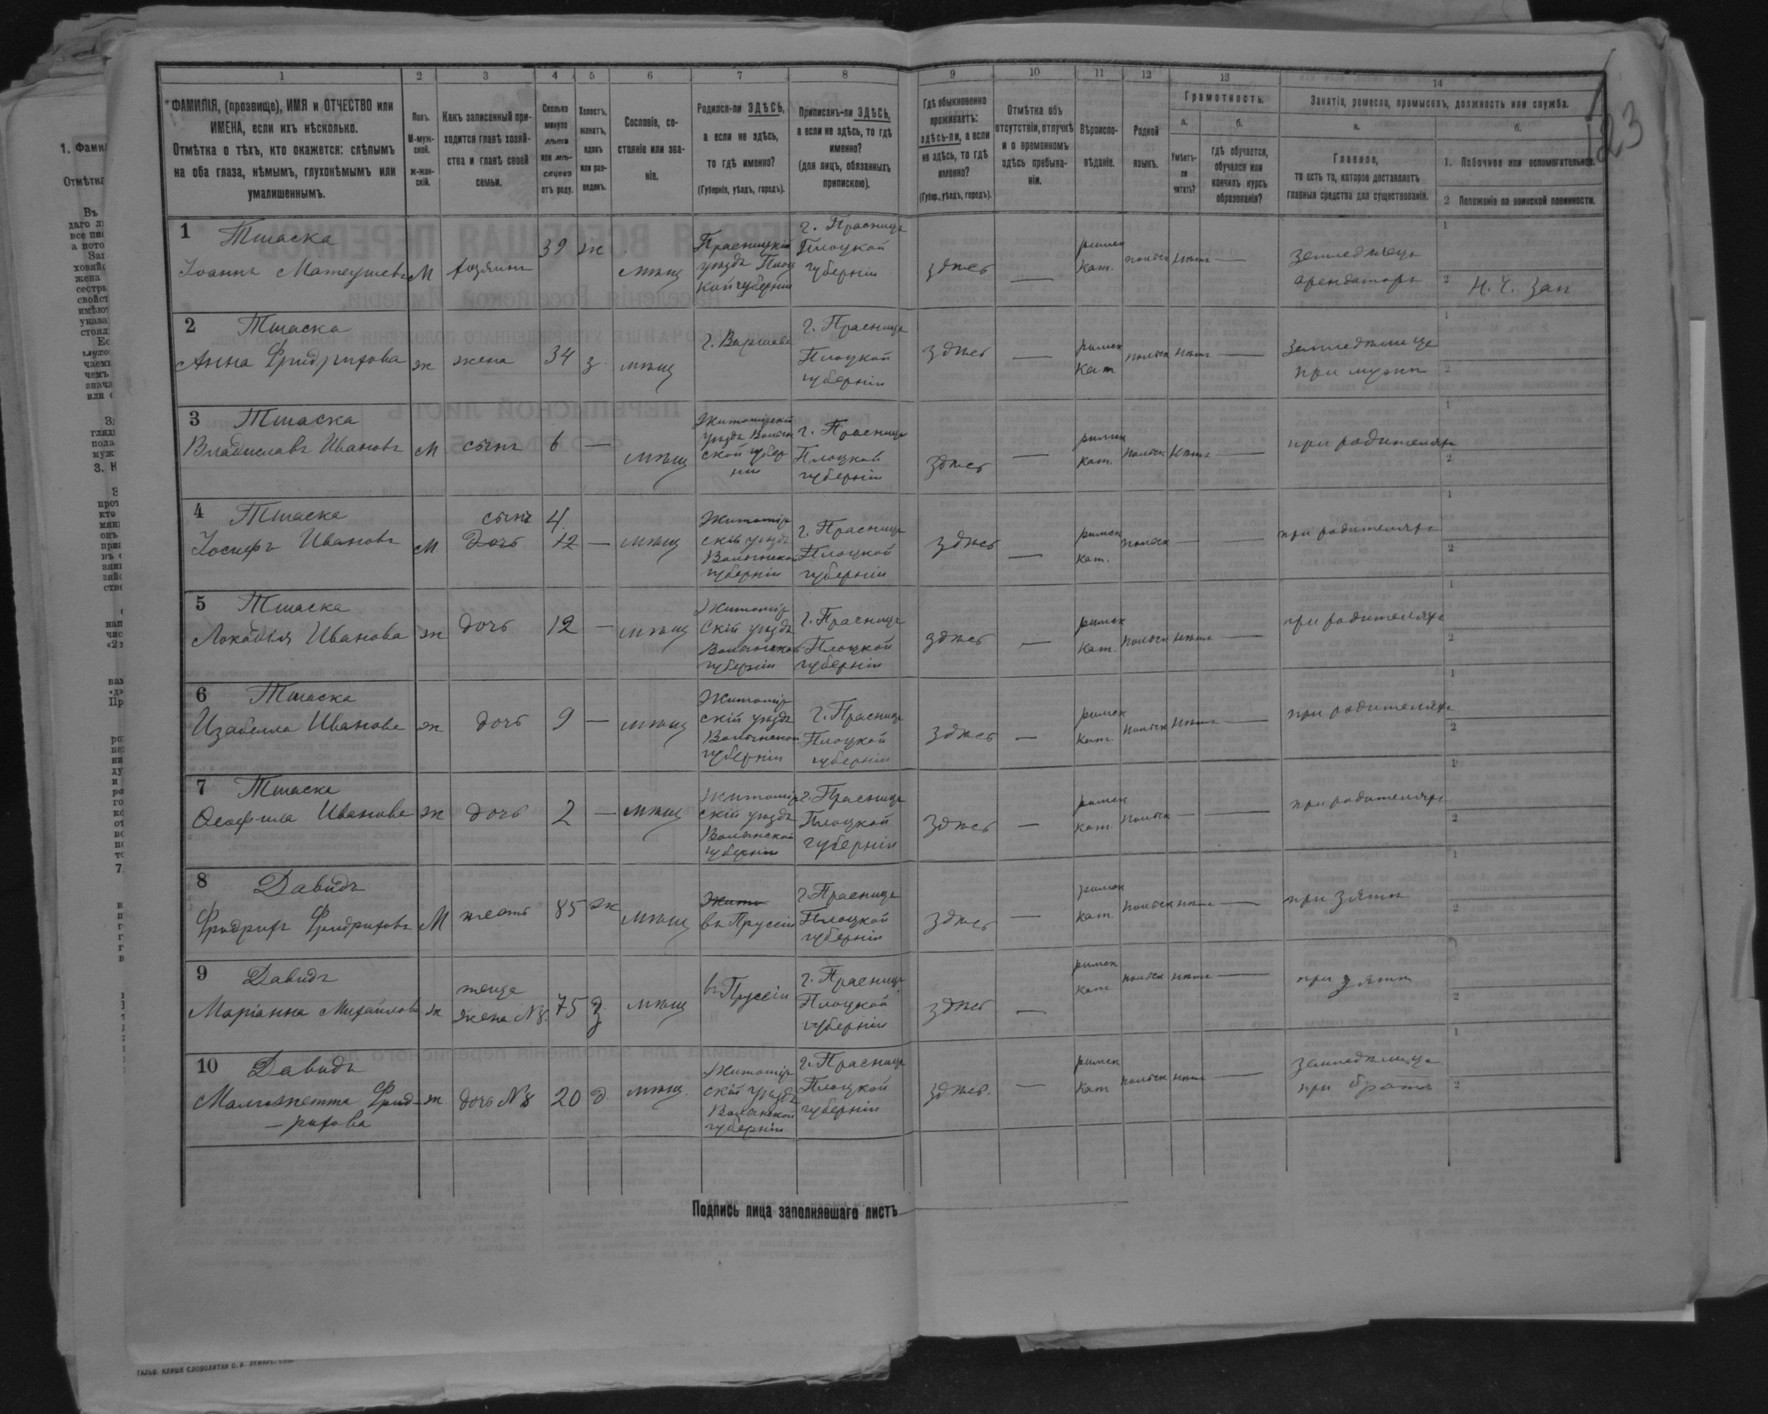 123
1 2 3 4 5 6 7 8 9 10 11 12 13 14
ФАМИЛІЯ, (прозвище), ИМЯ и ОТЧЕСТВО или
ИМЕНА, если ихъ нѣсколько.
Отмѣтка о тѣхъ, кто окажется: слѣпымъ
на оба глаза, нѣмымъ, глухонѣмымъ или
умалишеннымъ.
Полъ.
М-муж-
ской.
ж-жен-
скій.
Какъ записанный при-
ходится главѣ хозяй-
ства и главѣ своей
семьи.
Сколько
минуло
лѣтъ
или мѣ-
сяцевъ
отъ роду.
Холостъ,
женатъ,
вдовъ
или раз-
веденъ.
Сословіе, со-
стояніе или зва-
ніе.
Родился-ли ЗДѢСЬ,
а если не здѣсь,
то гдѣ именно?
(Губернія, уѣздъ, городъ).
Приписанъ-ли ЗДѢСЬ,
а если не здѣсь, то гдѣ
именно?
(для лицъ, обязанныхъ
припискою).
Гдѣ обыкновенно
проживаетъ:
здѣсь-ли, а если
не здѣсь, то гдѣ
именно?
(Губер., уѣздъ, городъ).
Отмѣтка объ
отсутствіи, отлучкѣ
и о временномъ
здѣсь пребыва-
ніи.
Вѣроиспо-
вѣданіе.
Родной
языкъ.
Грамотность.
а.
Умѣетъ-
ли
читать?
б.
Гдѣ обучается,
обучался или
кончилъ курсъ
образованія?
Занятіе, ремесло, промыселъ, должность или служба.
а.
Главное,
то есть то, которое доставляетъ
главныя средства для существованія.
б.
1. Побочное или вспомогательное.
2 Положеніе по воинской повинности.
1 Тшаска
Іоаннъ Матеушевъ М хозяинъ 39 ж мѣщ
Прасницкій
уѣздъ Плоц
кой губерніи
г. Прасницъ
Плоцкой
губерніи
здѣсь —
римск
Кат.
польск нѣтъ —
земледѣлецъ
арендаторъ
1
2 Н. Ч. Зап
2 Тшаска
Анна Фридрихова ж жена 34 з мѣщ
г. Варшава
г. Прасницъ
Плоцкой
губерніи
здѣсь —
римск
Кат
польск нѣтъ —
земледѣлица
при мужѣ
1
2
3 Тшаска
Владиславъ Ивановъ М сынъ 6 — мѣщ
Житомірскій
уѣздъ Волын
ской губер
ніи
г. Прасницъ
Плоцкой
губерніи
здѣсь —
римск
Кат.
польск нѣтъ —
при родителяхъ
1
2
4 Тшаска
Іосифъ Ивановъ М
сынъ 4
Дочь 12 — мѣщ
Житомір
скій уѣздъ
Волынской
губерніи
г. Прасницъ
Плоцкой
губерніи
здѣсь —
римск
Кат.
польск — —
при родителяхъ
1
2
5 Тшаска
Локадія Иванова ж дочь 12 — мѣщ
Житомір
скій уѣздъ
Волынской
губерніи
г. Прасницъ
Плоцкой
губерніи
здѣсь —
римск
Кат.
польск нѣтъ —
при родителяхъ
1
2
6 Тшаска
Изабелла Иванова ж дочь 9 — мѣщ
Житомір
скій уѣздъ
Волынской
губерніи
г. Прасницъ
Плоцкой
губерніи
здѣсь —
римск
Кат
польск нѣтъ —
при родителяхъ
1
2
7 Тшаска
Ѳеофила Иванова ж дочь 2 — мѣщ
Житомір
скій уѣздъ
Волынской
губерніи
г. Прасницъ
Плоцкой
губерніи
здѣсь —
римск
Кат
польск — —
при родителяхъ
1
2
8 Давидъ
Фридрихъ Фридриховъ М тесть 85 ж мѣщ
Жито
въ Пруссіи
г. Прасницъ
Плоцкой
губерніи
здѣсь —
римск
Кат
польск нѣтъ —
при зятѣ
1
2
9 Давидъ
Маріанна Михайлова ж
теща
жена №8. 75 з мѣщ
въ Пруссіи
г. Прасницъ
Плоцкой
губерніи
здѣсь —
римск
Кат
польск нѣтъ —
при зятѣ
2
10 Давидъ
Малгожетта Фрид-
—рихова ж дочь №8 20 д мѣщ.
Житомір
скій уѣздъ
Волынской
губерніи
г. Прасницъ
Плоцкой
губерніи
здѣсь. —
римск
Кат
польск нѣтъ —
земледѣлица
при братѣ
1
2
Подпись лица заполнявшаго листъ